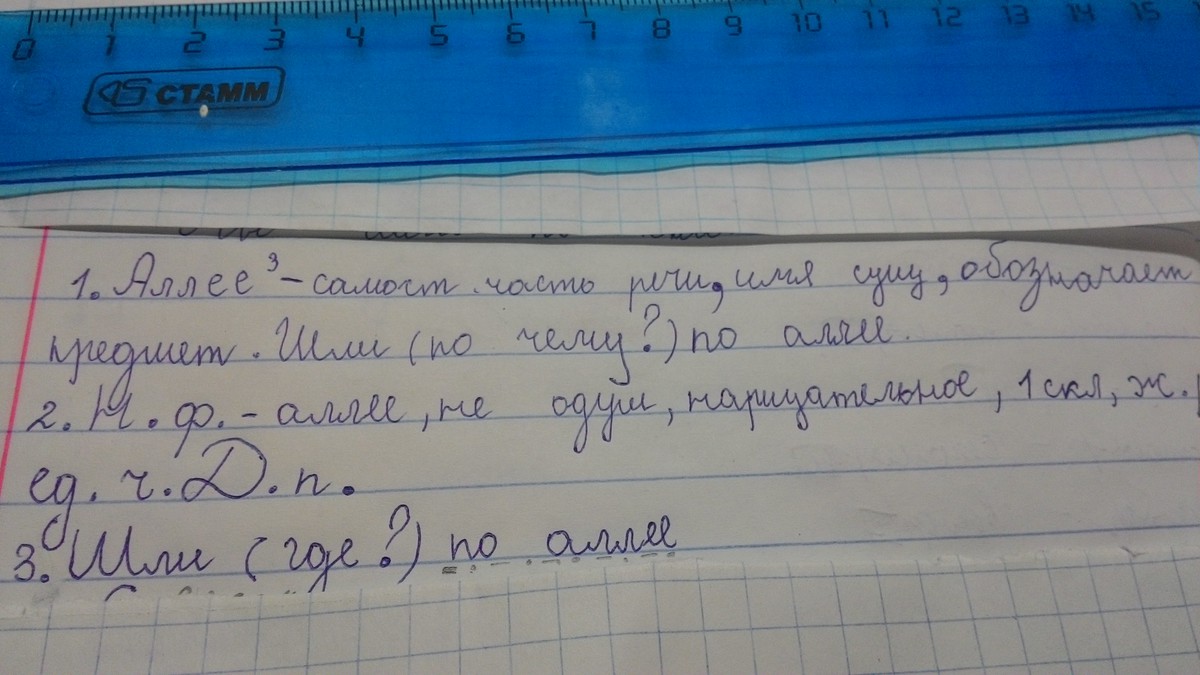 0 1 2 3 4 5 6 7 8 9 10 11 12 13 14 15
СТАММ
1. Аллее³ – самост. часть речи, имя сущ, обозначает
предмет. Шли (по чему?) по аллее.
2. Н. ф. - аллее, не одуш, нарицательное, 1 скл, ж. р
ед. ч. Д. п.
3. Шли (где?) по аллее